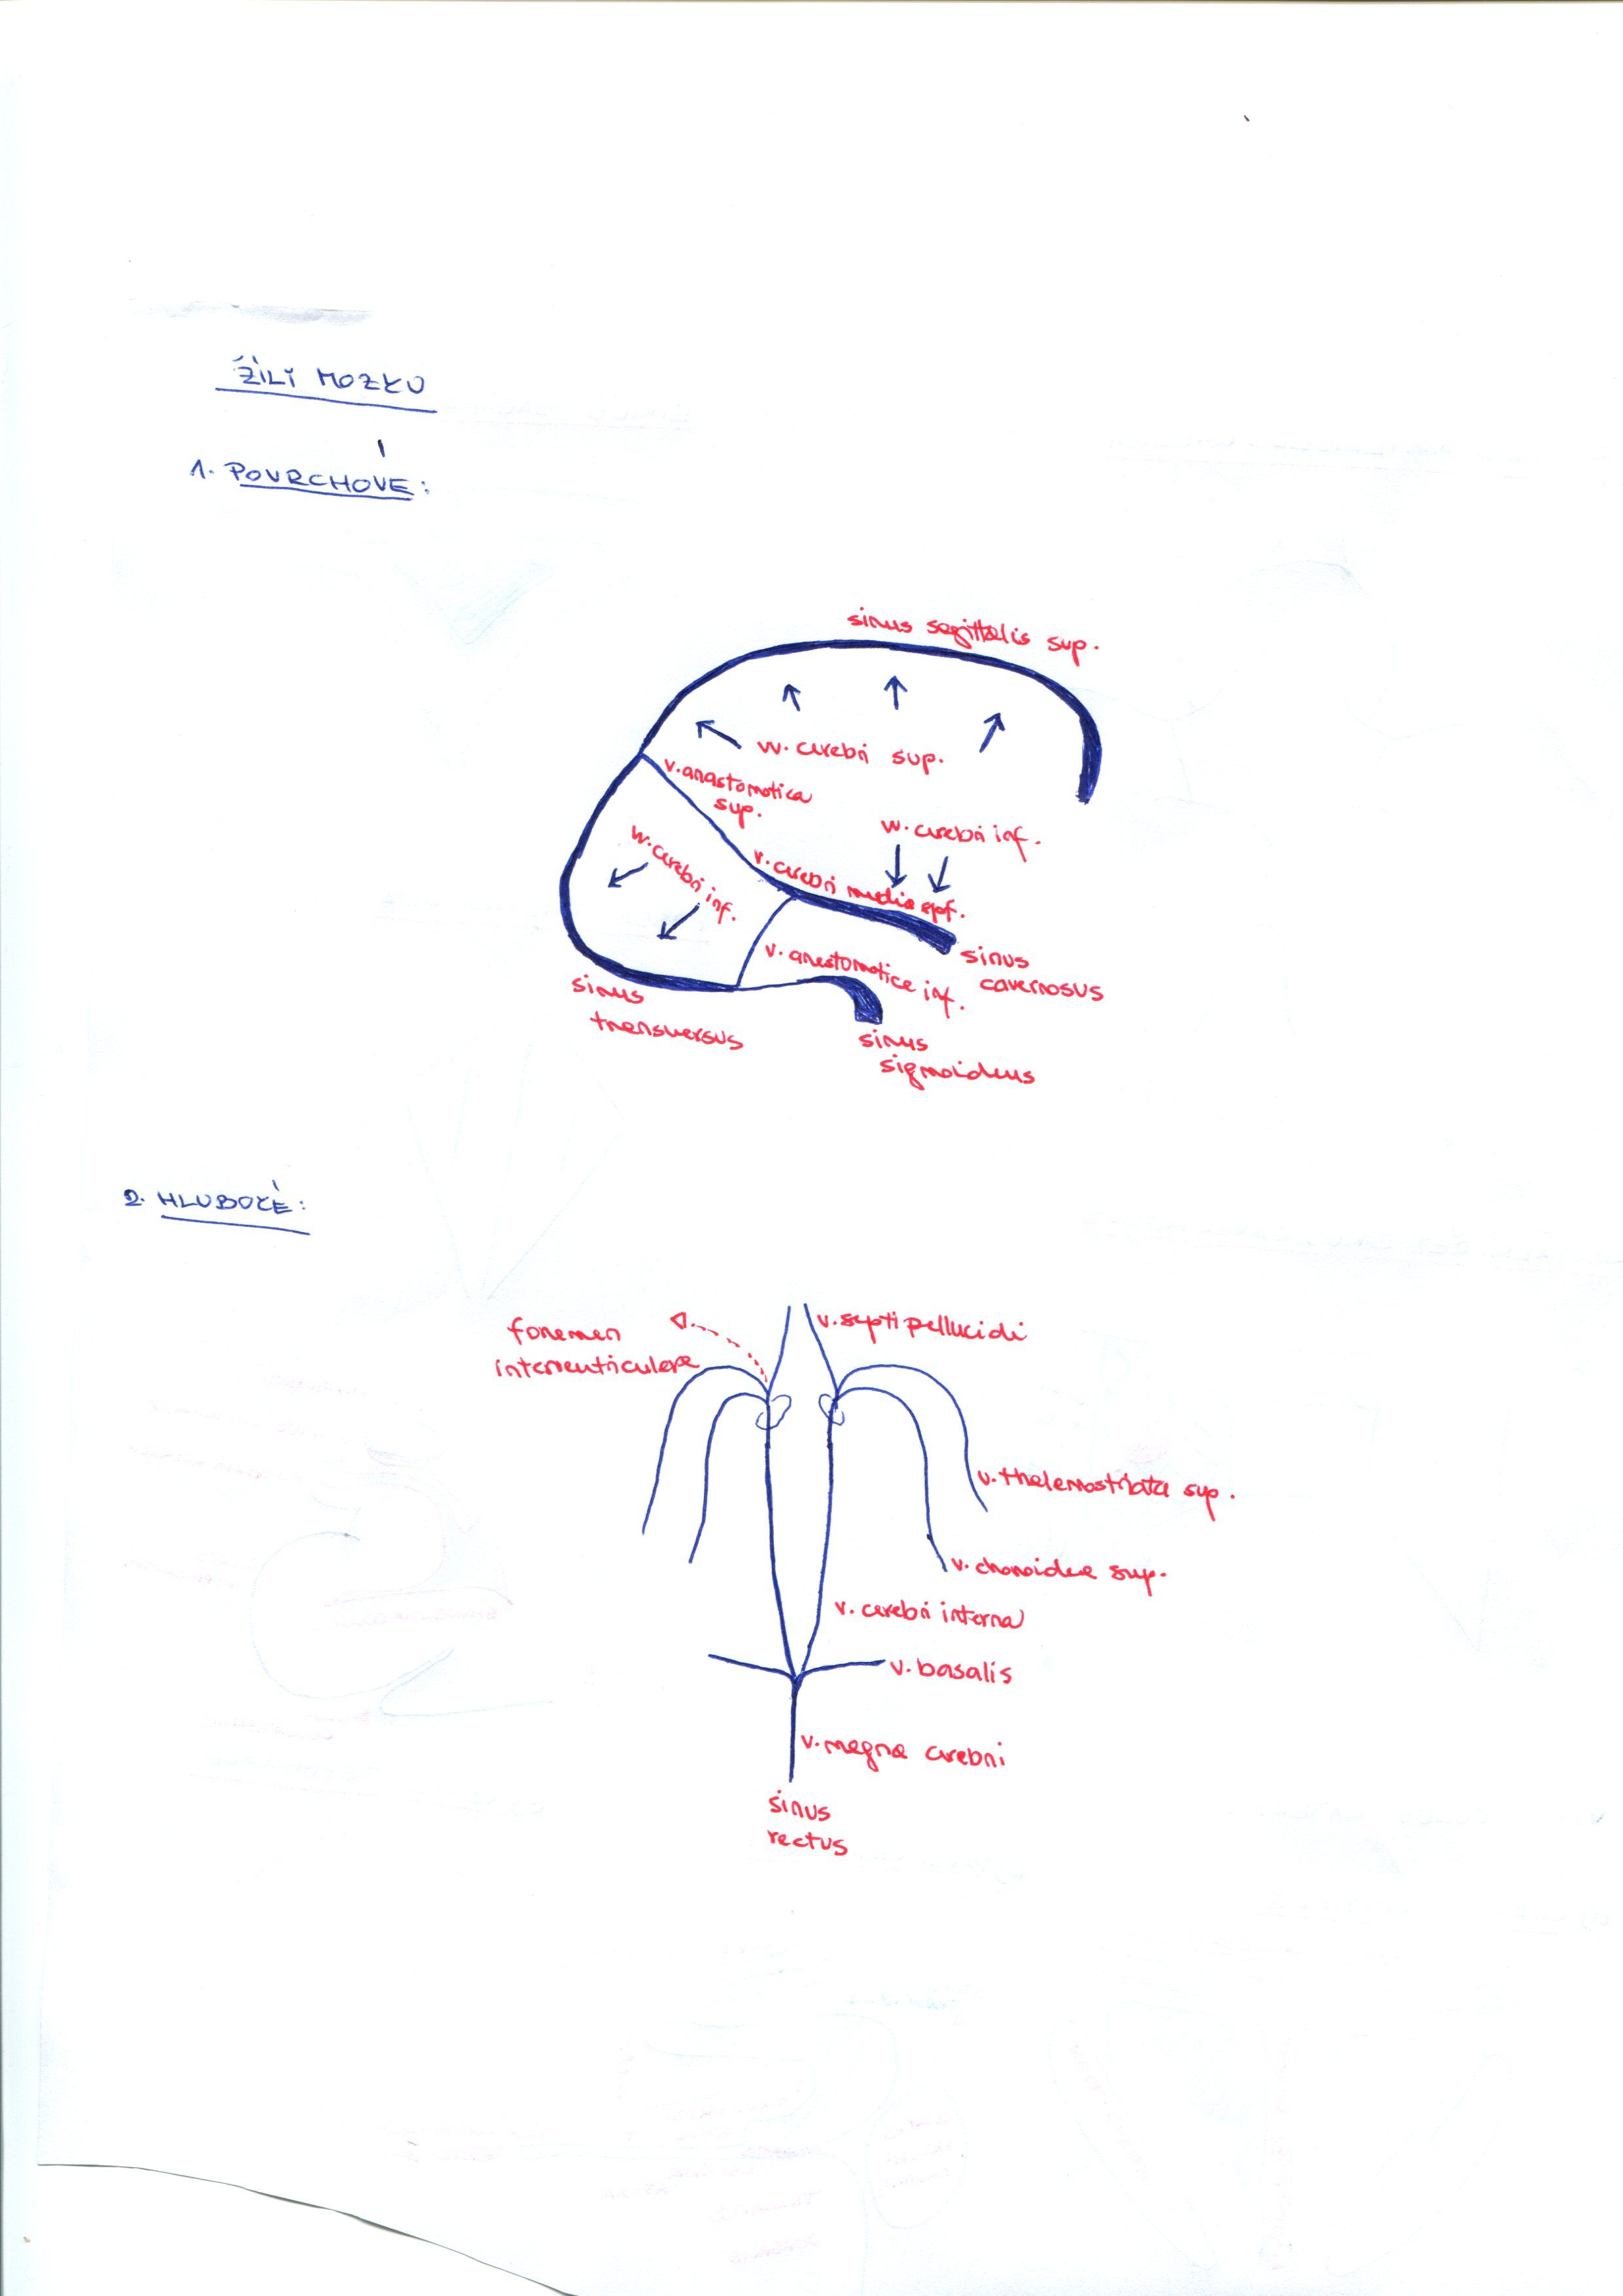 ŽÍLY MOZKU
1. POVRCHOVÉ:
sinus sagittalis sup.
vv. cerebri sup.
v. anastomotica
sup.
vv. cerebri inf.
vv. cerebri inf.
v. cerebri media spf.
sinus
cavernosus
v. anastomotica inf.
sinus
transversus
sinus
sigmoideus
2. HLUBOKÉ:
v. septi pellucidi
foramen
interventiculare
v. thalamostriata sup.
v. choroidea sup.
v. cerebri interna
v. basalis
v. magna cerebri
sinus
rectus